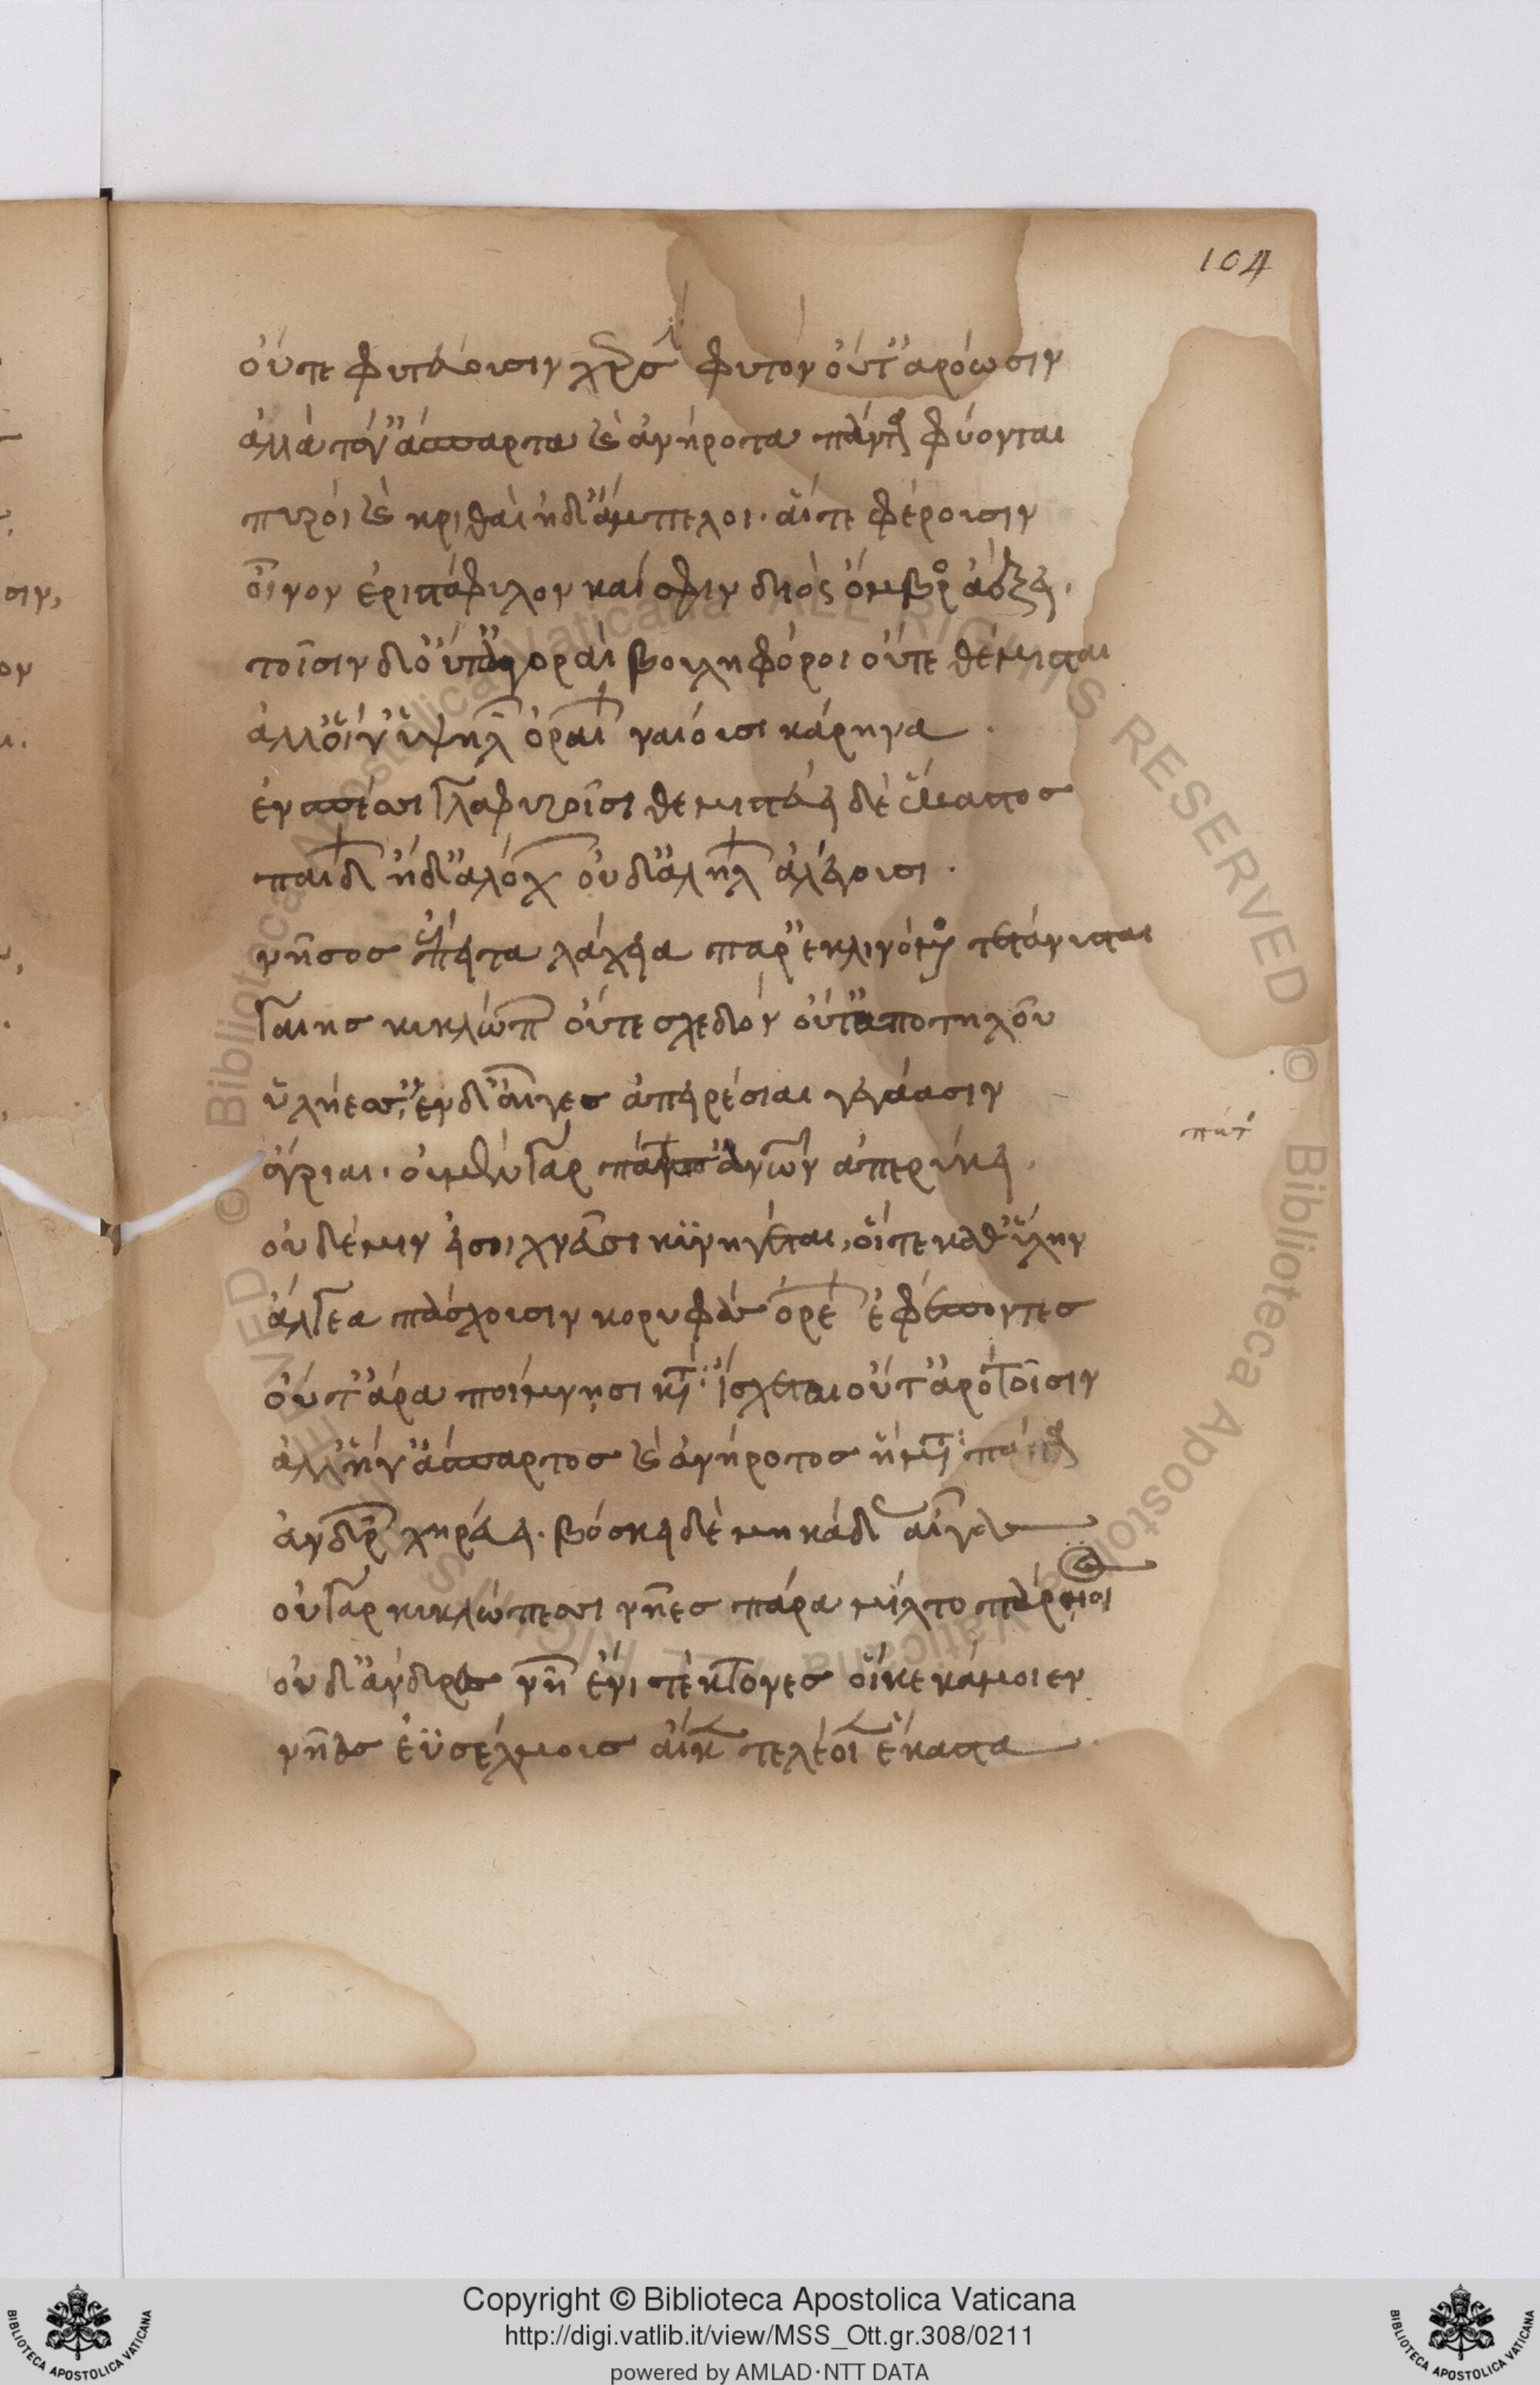 104
οὔτε φυτεύουσιν χερσὶ φυτὸν οὔτ' ἀρόωσιν
ἀλλὰ τάγ' ἄσπαρτα καὶ ἀνήροτα πάντα φύονται
πυροὶ καὶ κριθαὶ ἠδ' ἄμπελοι· αἵτε φέρουσιν
οἶνον ἐριστάφυλον καί σφιν διὸς ὄμβρος ἀέξει.
τοῖσιν δ' οὔτ' ἀγοραὶ βουληφόροι οὔτε θέμισται
ἀλλ' οἵγ' ὑψηλῶν ὀρέων ναίουσι κάρηνα.
ἐν σπέσσι γλαφυροῖσι θεμιστεύει δὲ ἕκαστος
παίδων ἠδ' ἀλόχων οὐδ' ἀλλήλων ἀλέγουσι.
νῆσος ἔπειτα λάχεια παρ' ἐκ λιμένος τετάνυσται
γαίης κυκλώπων οὔτε σχεδὸν οὔτ' ἀποτηλοῦ
ὑλήεσσ', ἐν δ' αἶγες ἀπειρέσιαι γεγάασιν
ἄγριαι. οὐ μὲν γὰρ πάτος ἀνθρώπων ἀπερύκει.
πάτ
οὐδέ μιν εἰσοιχνεῦσι κυνηγέται, οἵτε καθ' ὕλην
ἄλγεα πάσχουσιν κορυφὰς ὀρέων ἐφέποντες
οὔτ' ἄρα ποίμνῃσι καταΐσχεται οὔτ' ἀρότοισιν
ἀλλ' ἥγ' ἄσπαρτος καὶ ἀνήροτος ἤματα πάντα
ἀνδρῶν χηρεύει. βόσκει δὲ μηκάδας αἶγας
οὐ γὰρ κυκλώπεσσι νῆες πάρα μιλτοπάρῃοι
οὐδ' ἄνδρες νηῶν ἔνι τέκτονες οἵ κε κάμοιεν
νῆας ἐϋσέλμους αἵ κεν τελέοιεν ἕκαστα
Copyright © Biblioteca Apostolica Vaticana
http://digi.vatlib.it/view/MSS_Ott.gr.308/0211
powered by AMLAD·NTT DATA